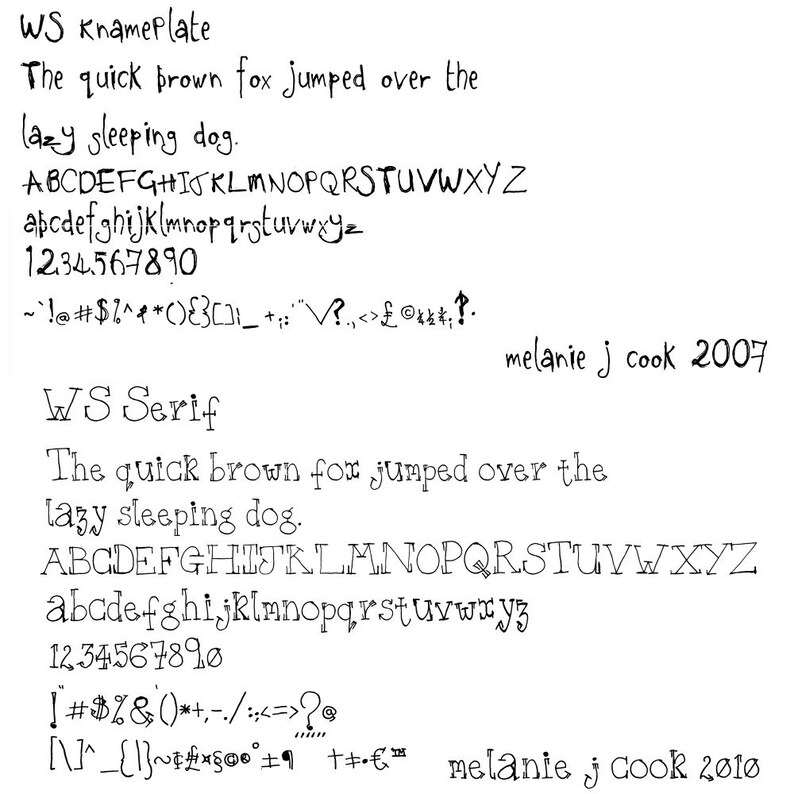 WS Knameplate
The quick brown fox jumped over the
lazy sleeping dog.
ABCDEFGHIJKLMNOPQRSTUVWXYZ
abcdefghijklmnopqrstuvwxyz
1234567890
~`!@#$%^&*(){}[]¡_ +;:'"\/?.,<>£©¼½¾;‽.
melanie j cook 2007
WS Serif
The quick brown fox jumped over the
lazy sleeping dog.
ABCDEFGHIJKLMNOPQRSTUVWXYZ
abcdefghijklmnopqrstuvwxyz
1234567890
!"#$%&'()*+,-./:;<=>?@
[\]^_{|}~¢£¤§©®°±¶ †‡•€™
melanie j cook 2010